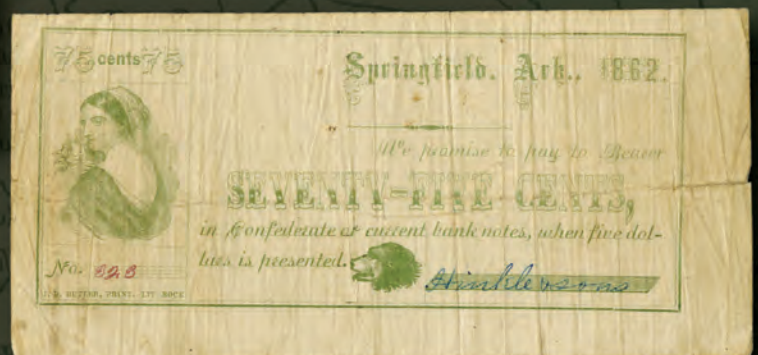 75 cents 75
Springfield, Ark., 1862.
We promise to pay to Bearer
SEVENTY-FIVE CENTS,
in Confederate or current bank notes, when five dol-
lars is presented.
No. 323
Hinkle & sons
PRINT. LIT ROCK